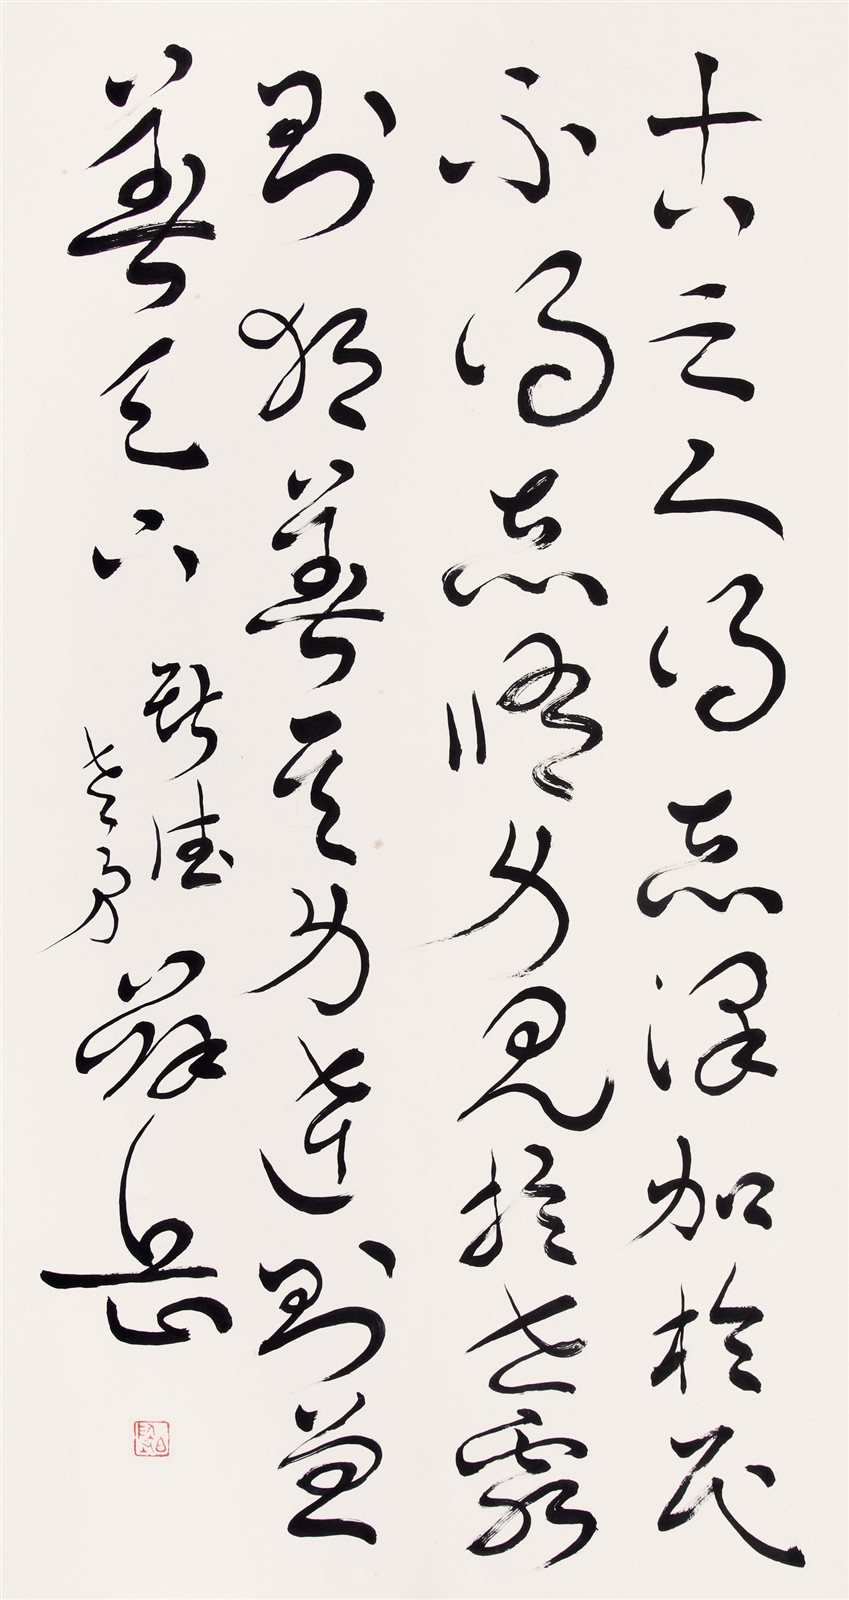 古之人得志澤加於民
不得志脩身見於世窮
則獨善其身達則兼
善天下
薛岳